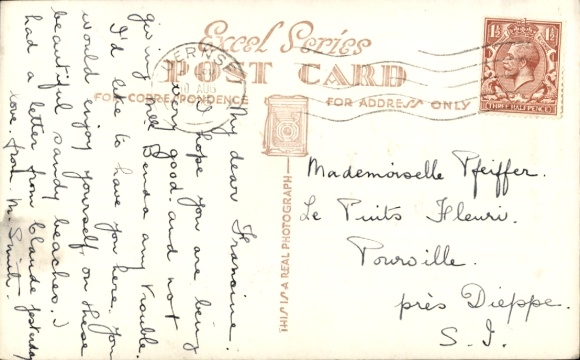 Excel Series
POST CARD
FOR CORRESPONDENCE
FOR ADDRESS ONLY
THIS IS A REAL PHOTOGRAPH
1½ 1½
THREE HALFPENCE
AUG
My dear Francine.
I hope you are being
very good and not
giving Mlle Benda any trouble.
I'd like to have you here. You
would enjoy yourself on these
beautiful sandy beaches. I
had a letter from Claude yesterday
love from M. Smith.
Mademoiselle Pfeiffer.
Le Puits Fleuri.
Pourville.
près Dieppe.
S. I.